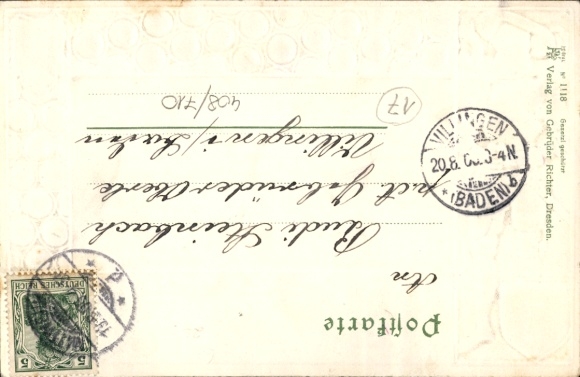 Postkarte
An
Rudi Steinbach
Gebrüder Oberle
Villingen i/Baden
408/710
17
VILLINGEN
20.8.06.3-4N.
* (BADEN) b
DEUTSCHES REICH
5
5
Nº 1118 Gesetzl. geschützt
Verlag von Gebrüder Richter, Dresden.